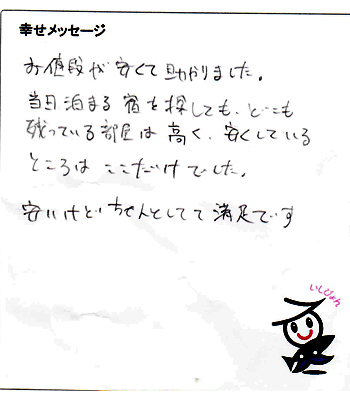 幸せメッセージ
お値段が安くて助かりました。
当日泊まる宿を探しても、どこも
残っている部屋は高く、安くしている
ところはここだけでした。
安いけどちゃんとしてて満足です
いしぴょん